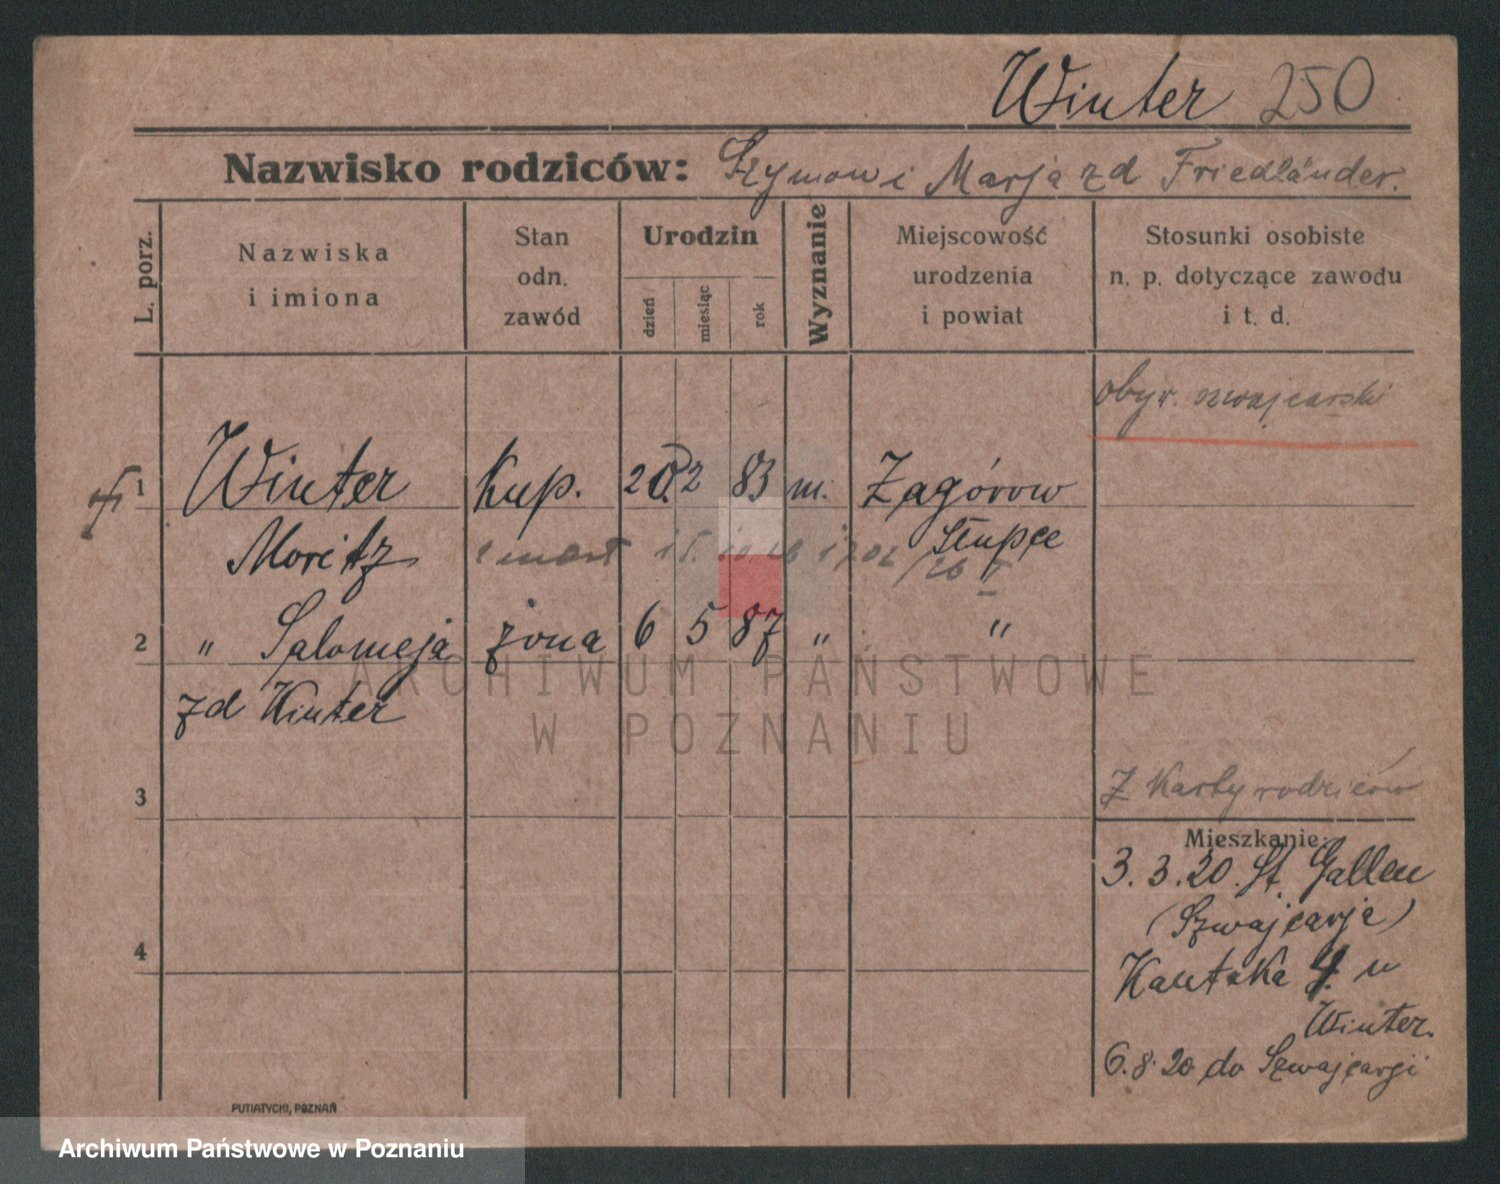 Winter 250
Nazwisko rodziców: Szymon i Marja zd Friedländer.
L. porz.
Nazwiska
i imiona
Stan
odn.
zawód
Urodzin
dzień
miesiąc
rok
Wyznanie
Miejscowość
urodzenia
i powiat
Stosunki osobiste
n. p. dotyczące zawodu
i t. d.
obyw. szwajcarski
1 Winter Kup. 20. 2 83 m. Zagórow
Moritz zmarł 15. 10. 26 Słupce
2 " Salomeja żona 6 5 87 " "
zd Winter
3
Z Karty rodziców
Mieszkanie:
3. 3. 20. St. Gallen
(Szwajcarja)
4
Kantaka 4. u
Winter.
6. 8. 20 do Szwajcarji
PUTIATYCKI, POZNAŃ
ARCHIWUM PAŃSTWOWE
W POZNANIU
Archiwum Państwowe w Poznaniu